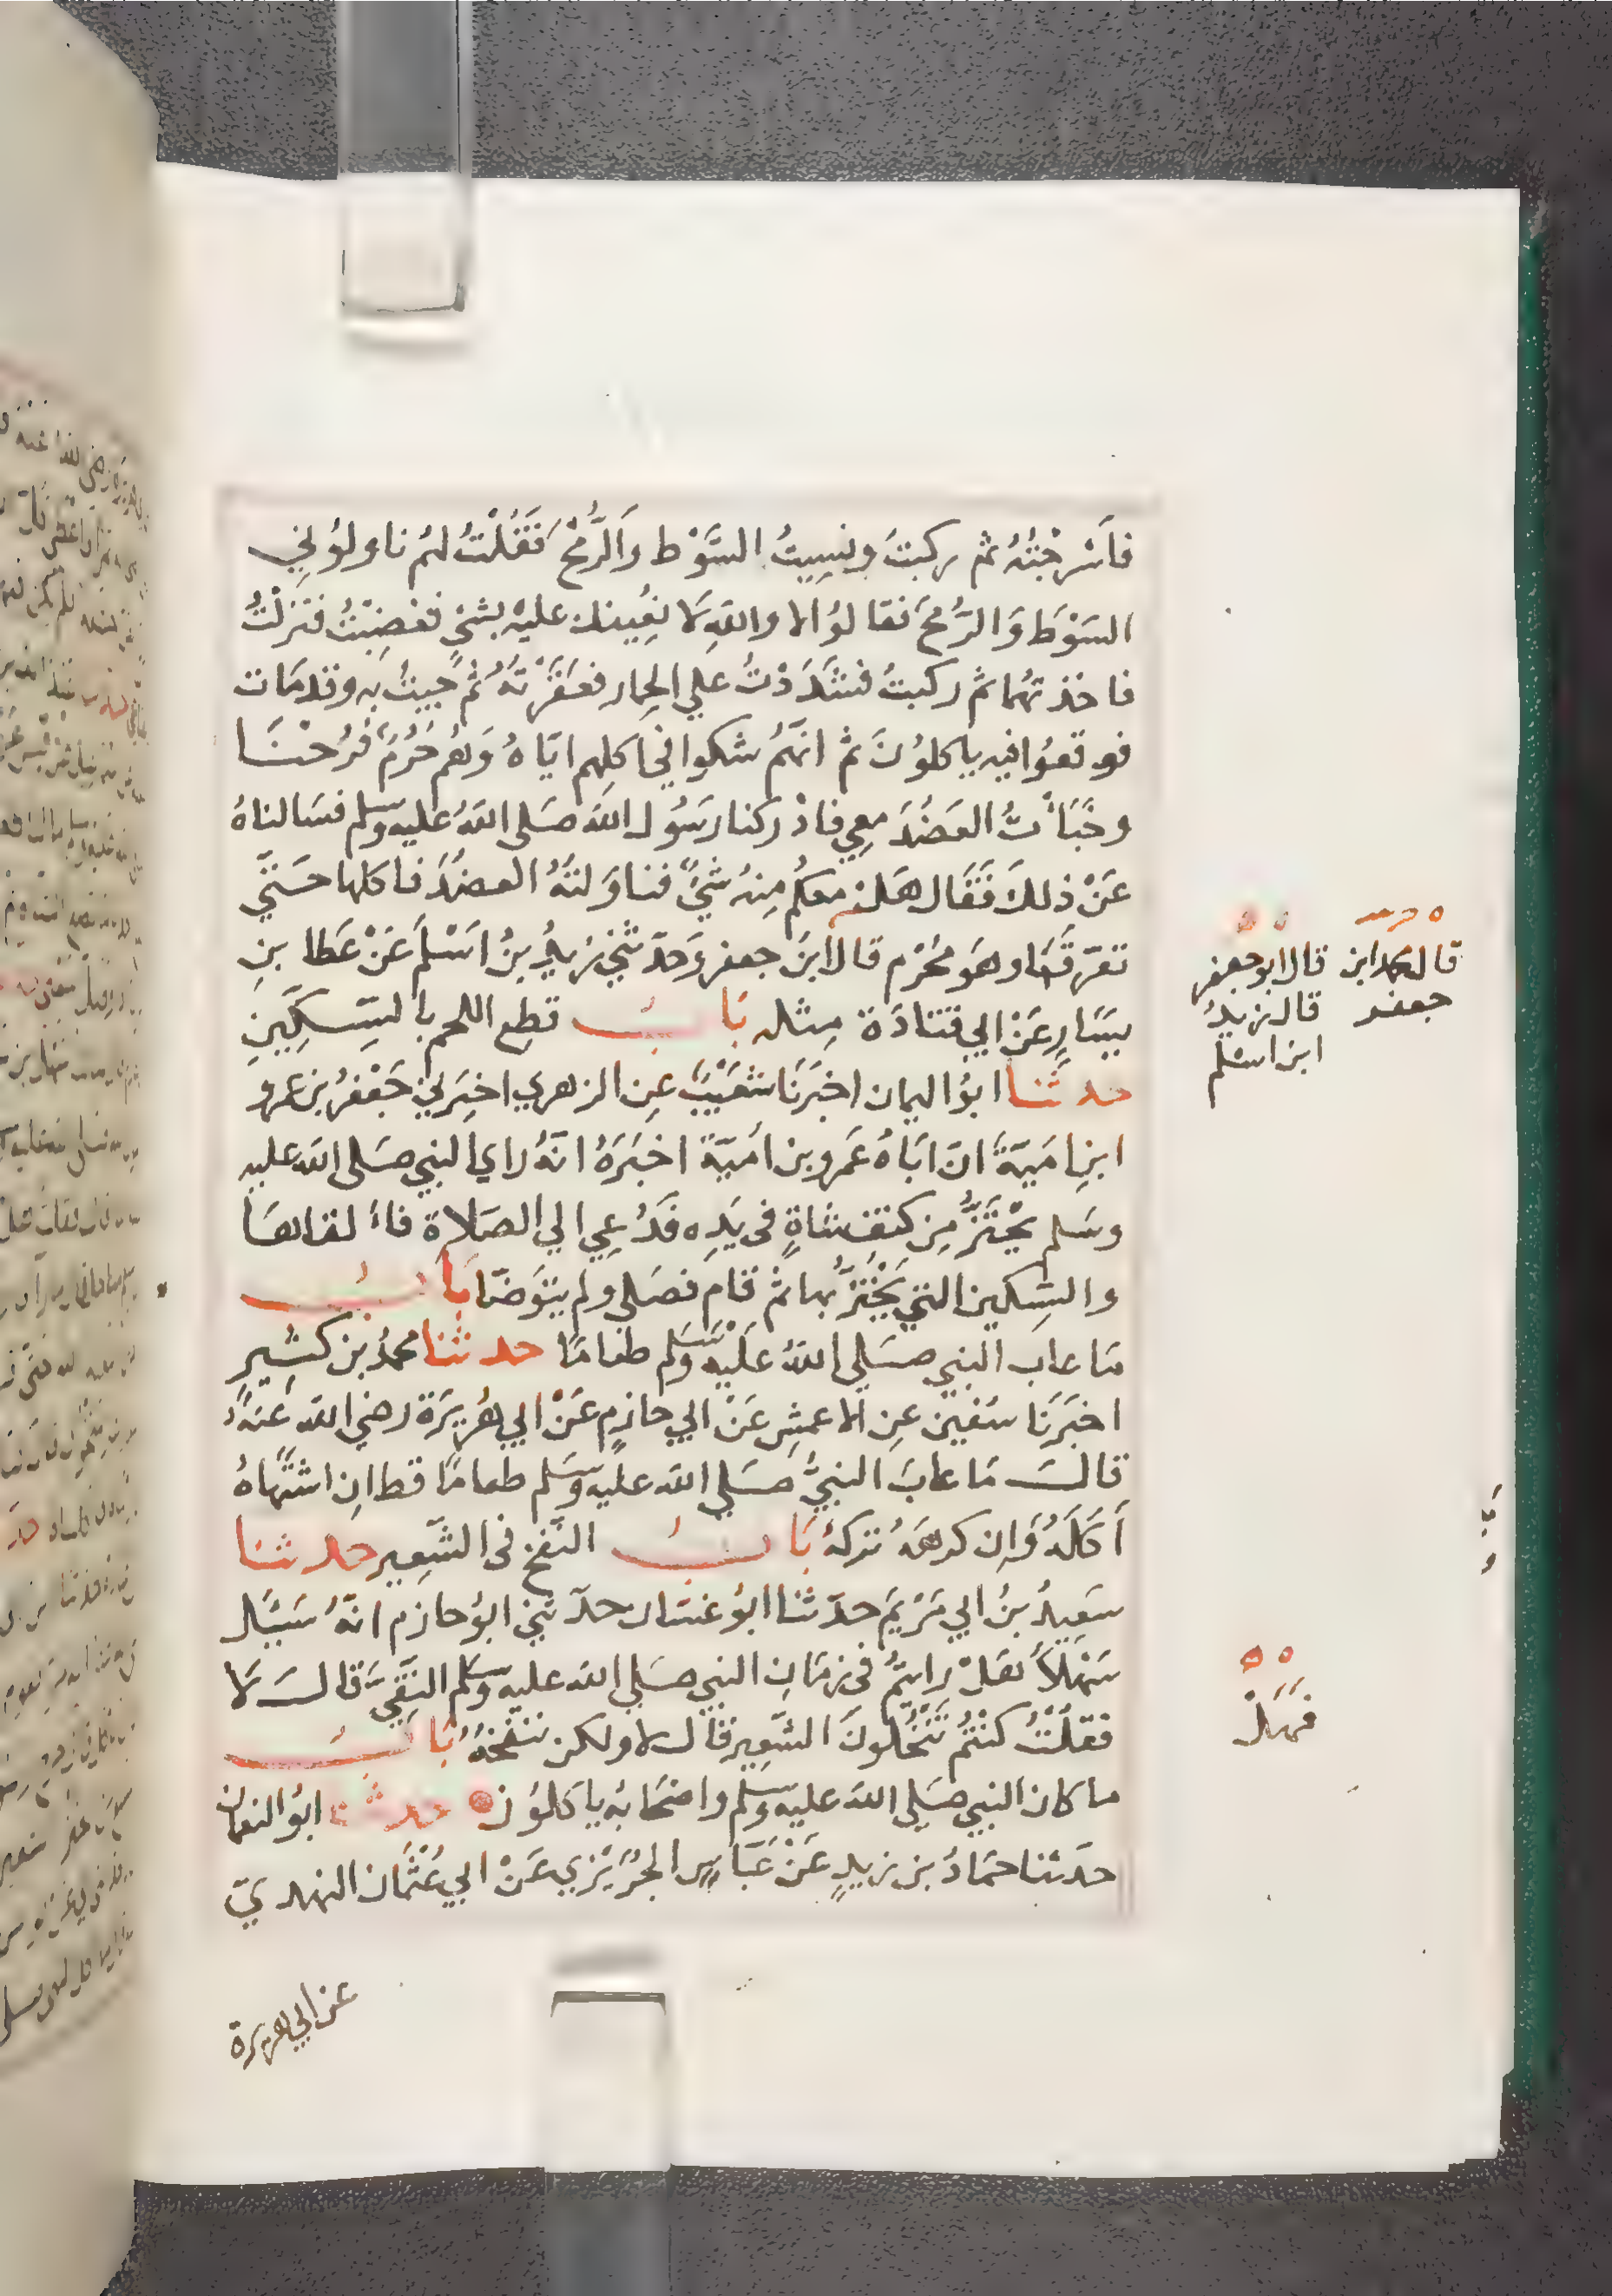 فَاَسْرَجْتُهُ ثم ركبتُ ونسِيتُ السَّوْط وَالرُّمْحَ فَقُلْتُ لهُم ناولوُنِي
السَوْطَ وَالرُّمْحَ فقالوُا لا واللهِ لَا نُعِينك عليْهِ بشيْءٍ فغضِبْتُ فنَزلْتُ
فاخذتهُما ثم ركبتُ فشَدَدْتُ علي الحِمار فعَقَرْتهُ ثُمَّ جيتُ بهِ وقدمَات
فوقعوُا فيهِ ياكلوُنَ ثم انهَّمُ شكوا في اكلِهم ايّاهُ وَهُم حُرُمٌ فَرُحْنَا
وخَبَأْتُ العَضُدَ معِي فادْركنا رَسُول الله صَلى اللهُ عليه وسَلم فسَالناهُ
عَنْ ذلك فَقَال هَلْ معكُم مِنهُ شيْءٌ فناوَلتهُ العضُدَ فاكلها حَتيّ
تعَرّقَهَا وهوَ محُرْم قال ابنَ جعفر وَحَدّثني زيدُ بنُ اَسْلمَ عَنْ عَطا بنِ
يسَارٍ عَنْ ابي قتادَة مِثله بَابُ قطع اللحم بالسّكينِ
حدثنا ابوُ اليمان اخبَرنَا شعَيْبٌ عِن الزهري اخبَرني جَعْفرُ بن عمرو
ابنِ امَيّةَ انَ ابَاهُ عَمرو بن امَيّة اخبَرَهُ انهُ راي النبي صَلى الله عليه
وسَلم يحْتَزُّ مِن كتف شاةٍ في يَدِه فَدُعِي الي الصَلاة فالقاهَا
والسِّكين التي يَحْتَزُّ بها ثم قام فصَلي ولم يتوَضّا بَابُ
مَا عاب النبي صَلي اللهُ عليْه وسَلم طعامًا حدثنا محمدُ بن كثِيرٍ
اخبَرَنَا سُفين عِن الاعمَشِ عَنْ ابي حازمٍ عَنْ ابي هُريَرَة رضي الله عَنهُ
قالَ مَا عابَ النبيُّ صَلي الله عليه وسَلم طعامًا قط انِ اشتَهاهُ
أَكَلَهُ وَانِ كرهَهُ تركهُ بَابُ النّفخِ في الشّعِير حدثنا
سَعِيدُ بنُ ابي مَرْيَمَ حدّثنا ابوُ غسّان حدّثني ابوُ حازم انهُ سَئَلَ
سَهْلاً هَلْ رايتُمُ في زمَانِ النبي صَلي الله عليه وسَلم النَّقِيَّ قالَ لَا
فقلْتُ كنتُم تَنْخُلونَ الشّعِير قال لا ولكن ننفخهُ بَابُ
ما كان النبي صَلي الله عليه وسَلم واصْحَابُه ياكلوُن حدثنا ابوُ النعمان
حدَثنا حمَادُ بن زيدٍ عَنْ عَبّاسٍ الجُرَيْري عَنْ ابي عُثْمَان النهديّ
عن ابي هريرة
قال محمد ابن
جعفر
قال ابو جعفر
قال زيدُ
ابن اسْلم
فهَلْ